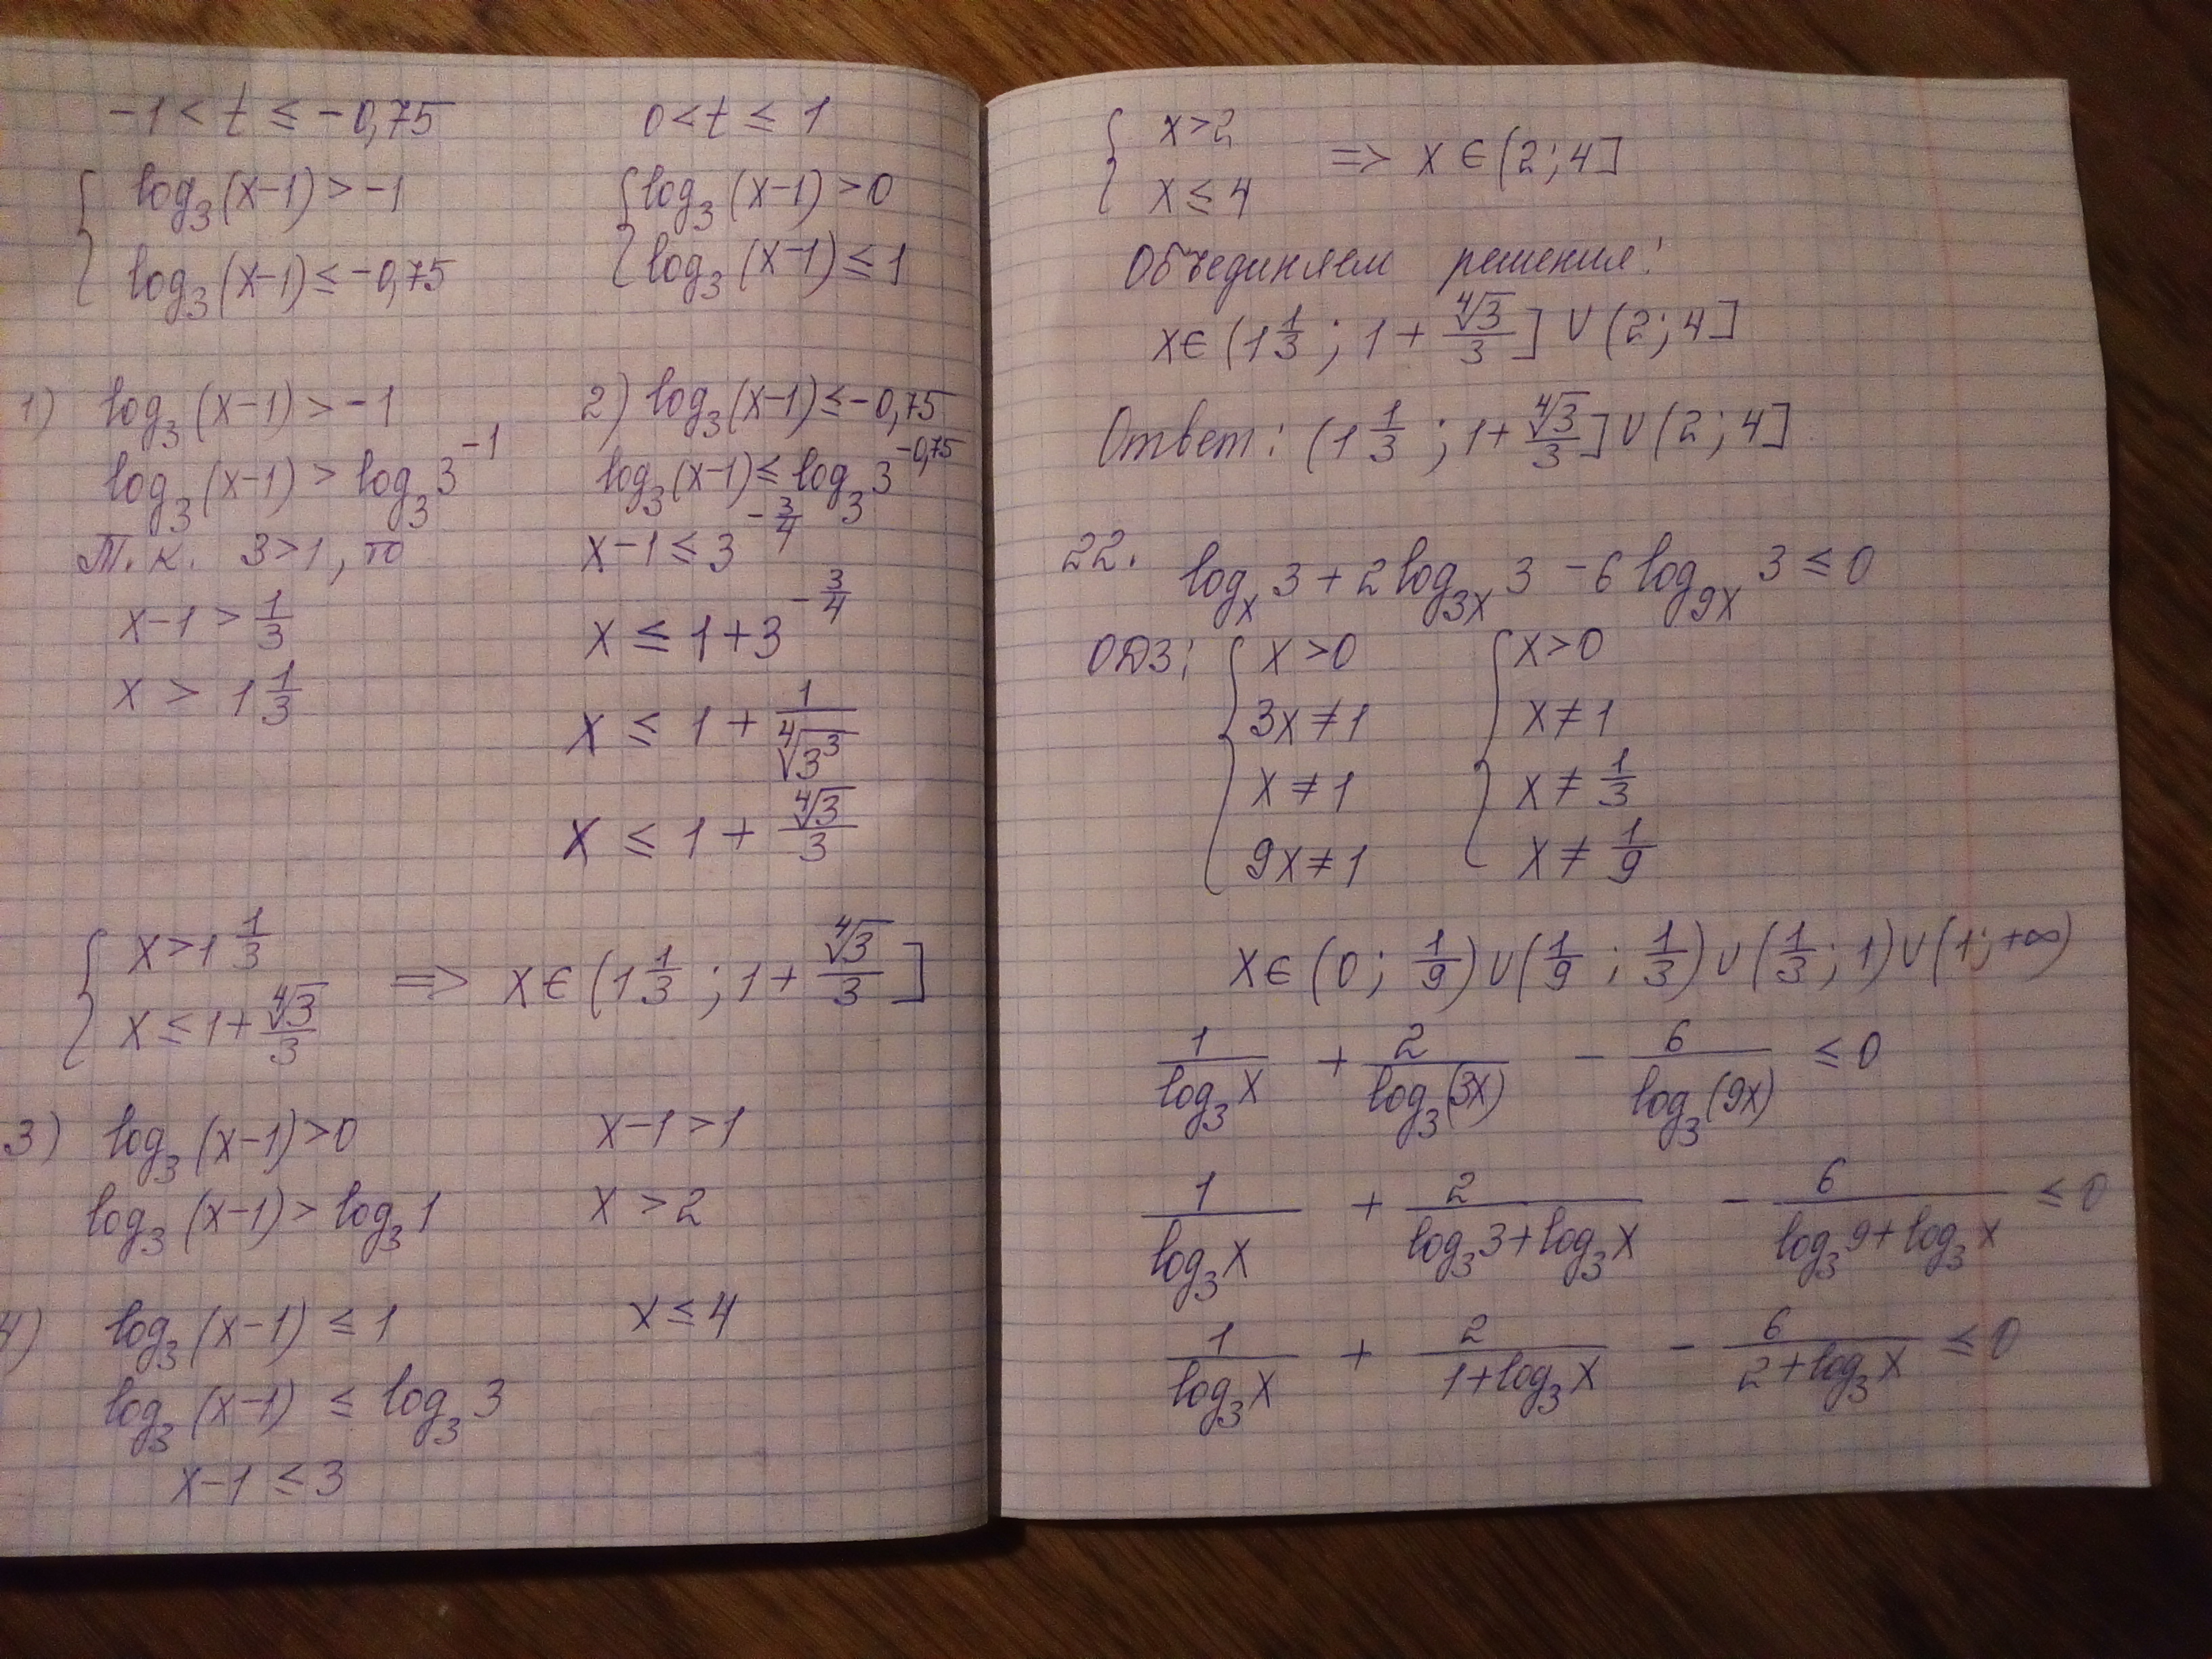 -1 < t ≤ -0,75
0 < t ≤ 1
{ log₃(x-1) > -1
log₃(x-1) ≤ -0,75
{ log₃(x-1) > 0
log₃(x-1) ≤ 1
1) log₃(x-1) > -1
log₃(x-1) > log₃3⁻¹
Т.к. 3>1, то
x-1 > 1/3
x > 1 1/3
2) log₃(x-1) ≤ -0,75
log₃(x-1) ≤ log₃3^(-0,75)
x-1 ≤ 3^(-3/4)
x ≤ 1+3^(-3/4)
x ≤ 1 + 1/∜3³
x ≤ 1 + ∜3/3
{ x > 1 1/3
x ≤ 1 + ∜3/3
=> x ∈ (1 1/3 ; 1 + ∜3/3]
3) log₃(x-1) > 0
log₃(x-1) > log₃1
x-1 > 1
x > 2
4) log₃(x-1) ≤ 1
log₃(x-1) ≤ log₃3
x-1 ≤ 3
x ≤ 4
{ x > 2
x ≤ 4
=> x ∈ (2; 4]
Объединяем решения:
x ∈ (1 1/3 ; 1 + ∜3/3] ∪ (2; 4]
Ответ: (1 1/3 ; 1 + ∜3/3] ∪ (2; 4].
22. logₓ3 + 2log₃ₓ3 - 6log₉ₓ3 ≤ 0
ОДЗ: { x > 0
3x ≠ 1
x ≠ 1
9x ≠ 1
{ x > 0
x ≠ 1
x ≠ 1/3
x ≠ 1/9
x ∈ (0; 1/9) ∪ (1/9 ; 1/3) ∪ (1/3 ; 1) ∪ (1; +∞)
1/log₃x + 2/log₃(3x) - 6/log₃(9x) ≤ 0
1/log₃x + 2/(log₃3+log₃x) - 6/(log₃9+log₃x) ≤ 0
1/log₃x + 2/(1+log₃x) - 6/(2+log₃x) ≤ 0